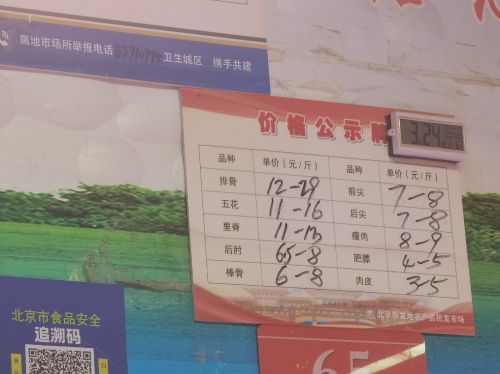 属地市场所举报电话83710775卫生城区 携手共建
价格公示牌
3.24
品种 单价（元/斤） 品种 单价（元/斤）
排骨 12-29 前尖 7-8
五花 11-16 后尖 7-8
里脊 11-13 瘦肉 8-9
后肘 65-8 肥膘 4-5
棒骨 6-8 肉皮 3-5
北京新发地农产品批发市场
北京市食品安全
追溯码
65